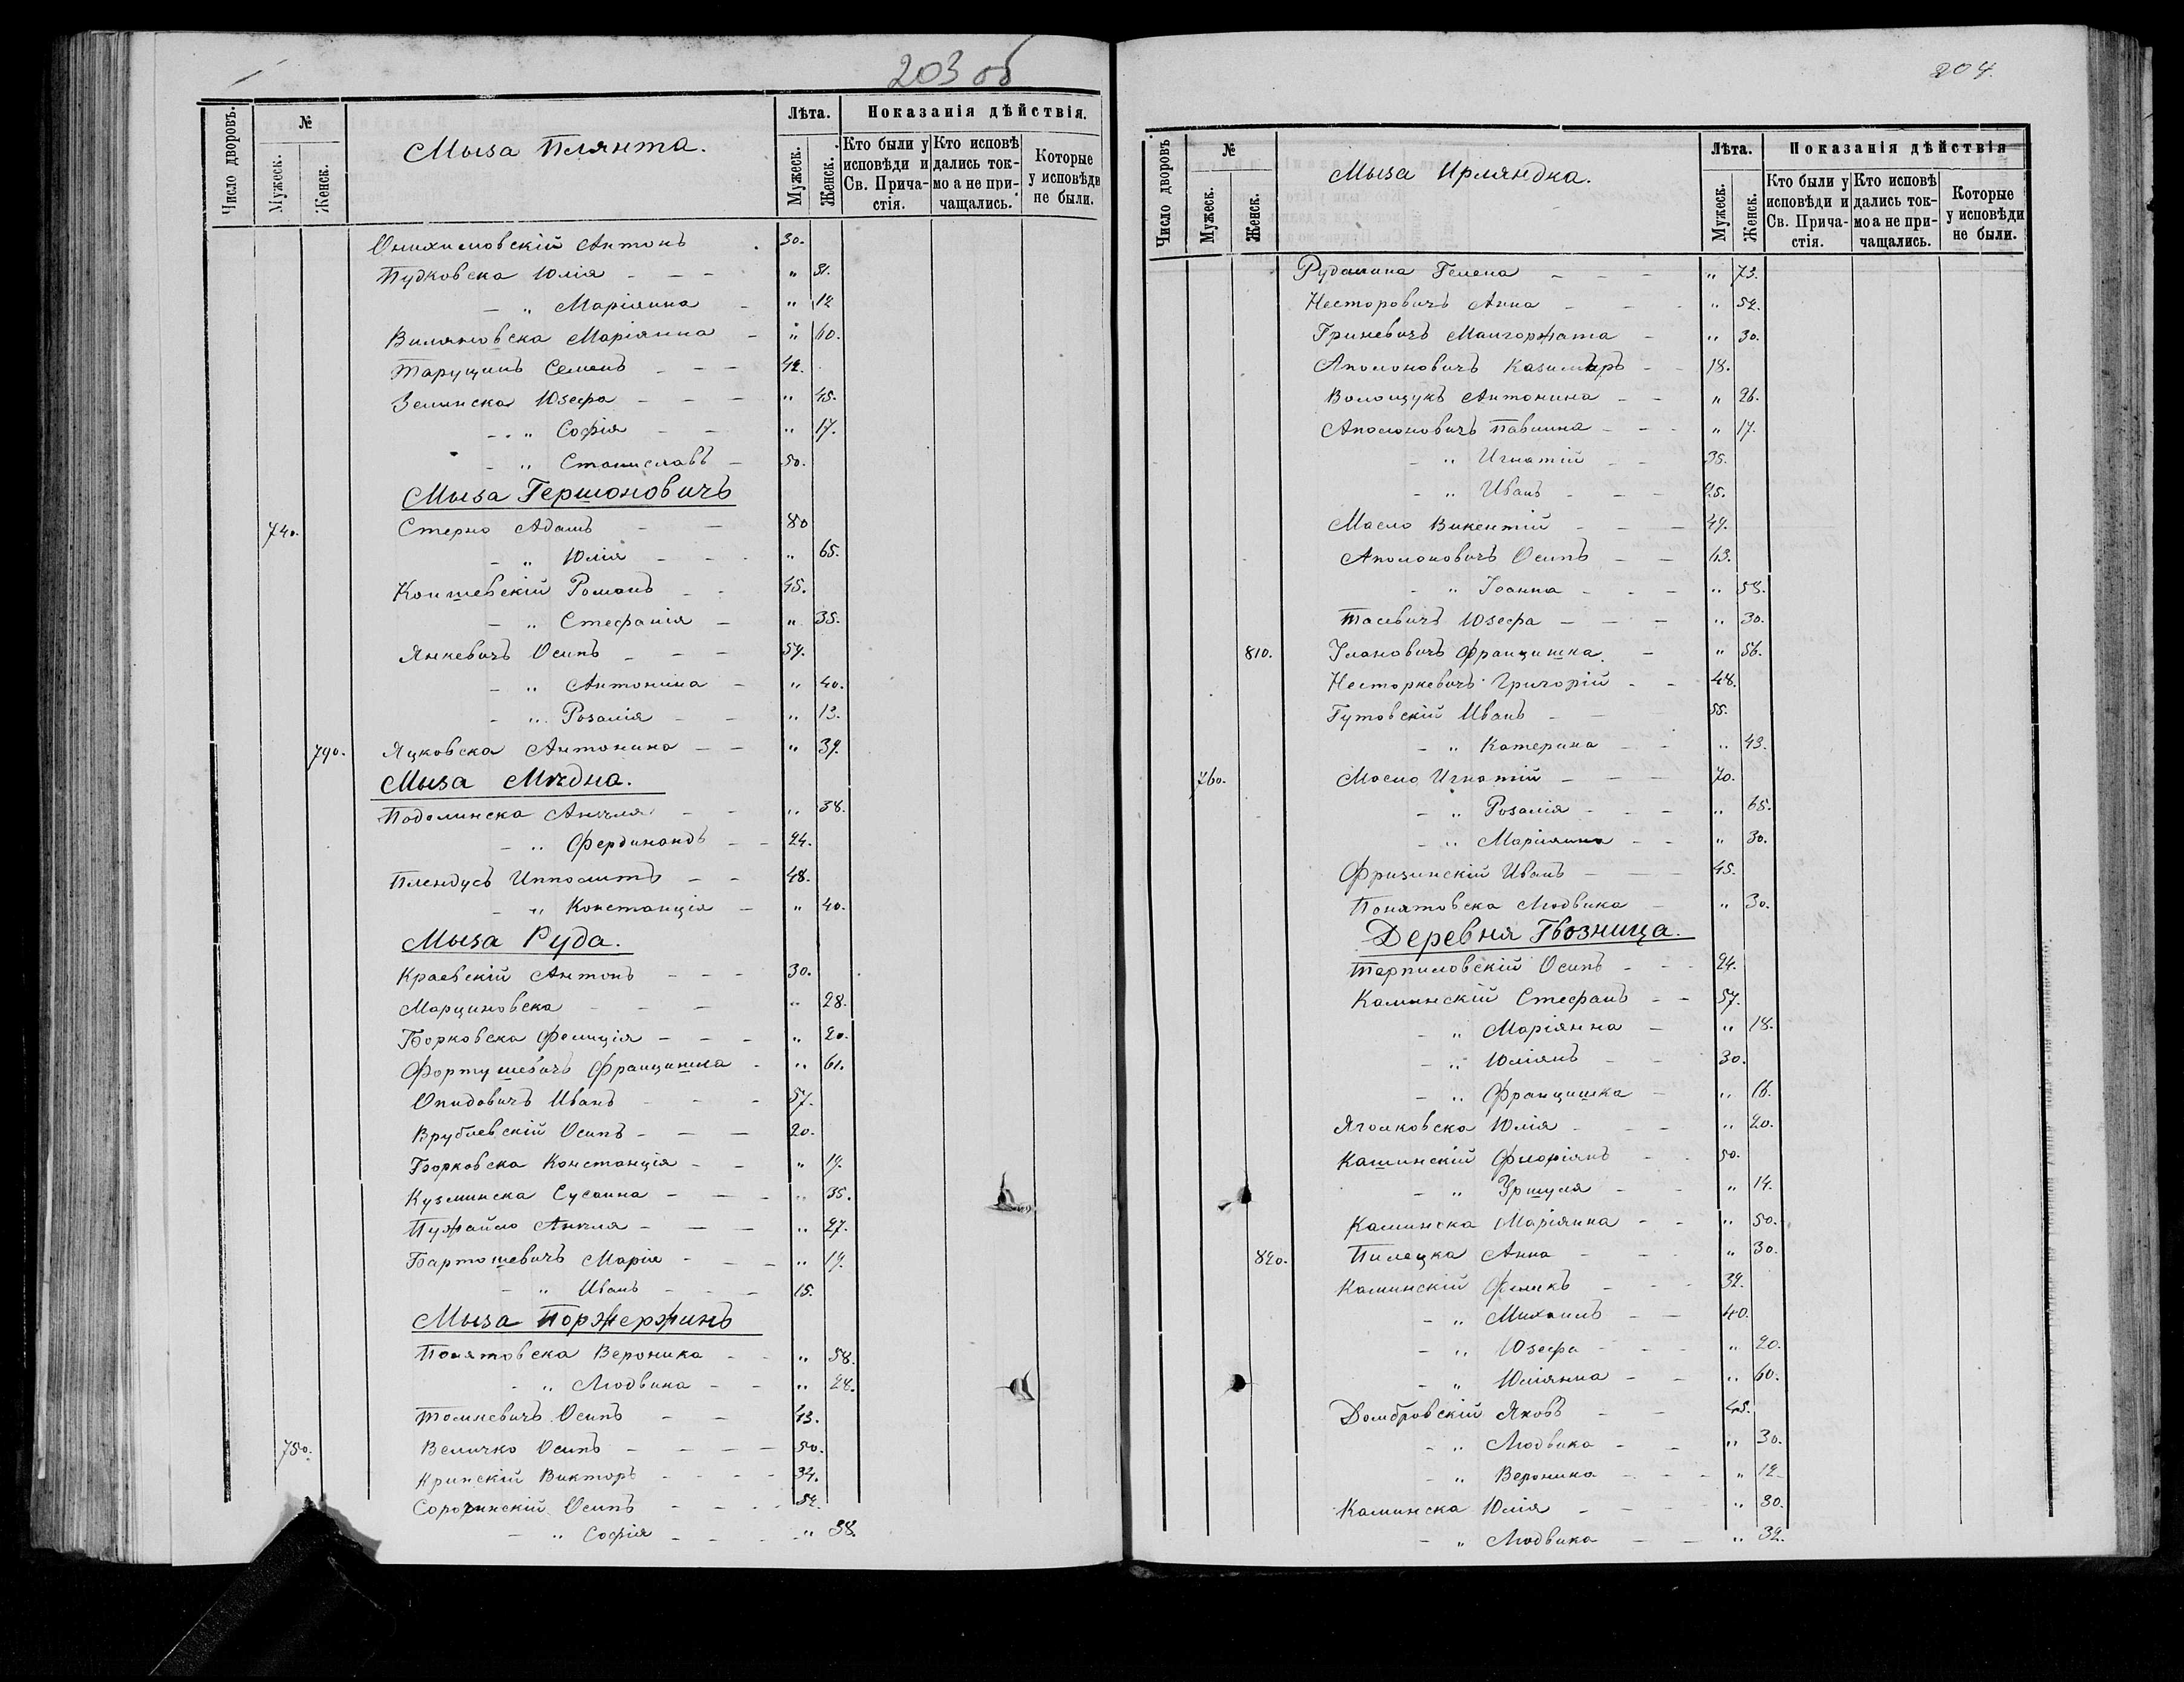 203 об
Число дворовъ.
№
Мужеск.
Женск.
Мыза Плянта.
Лѣта.
Мужеск.
Женск.
Показанія дѣйствія.
Кто были у исповѣди и Св. Причастія.
Кто исповѣдались токмо а не причащались.
Которые у исповѣди не были.
Онихимовскій Антонъ 30.
Пудковска Юлія - - - „ 31.
- „ Маріянна - „ 12
Виляновска Маріянна - „ 60.
Тарущинъ Семенъ - - - 42.
Земинска Юзефа - - - „ 45.
- „ Софія - - „ 17.
- „ Станиславъ - 50.
Мыза Гершоновичъ
740. Стерно Адамъ - - 80
- „ Юлія - - - „ 65.
Копшевскій Романъ - - 45.
- „ Стефанія - „ 35.
Янкевичъ Осипъ - - - 57.
- „ Антонина - „ 40.
- „ Розалія - - „ 13.
790. Яцковска Антонина - - „ 39.
Мыза Мѣдна.
Подолинска Анѣля - - „ 38.
- „ Фердинандъ - - 24.
Плендусъ Ипполитъ - - 48.
- „ Констанція - „ 40.
Мыза Руда.
Краевскій Антонъ - - - 30.
Марциновска - - - „ 28.
Борковска Фелиція - - - „ 20.
Фортушевичъ Францишка - „ 61.
Опидовичъ Иванъ - - - 57.
Врублевскій Осипъ - - - 20.
Борковска Констанція - - „ 17.
Кузминска Сусанна - - - „ 35.
Пужайло Анѣля - - - „ 27.
Бартошевичъ Марія - - - „ 17.
- „ Иванъ - - - 15.
Мыза Поржержинъ
Понятовска Вероника - - „ 58.
- „ Людвика - - „ 28.
Томкевичъ Осипъ - - 43.
750. Величко Осипъ - - - - 50.
Крипскій Викторъ - - - - 34.
Сорочинскій Осипъ - - - 52.
- „ Софія - - - „ 38.
204.
Число дворовъ
№
Мужеск.
Женск.
Мыза Ирляндка.
Лѣта.
Мужеск.
Женск.
Показанія дѣйствія
Кто были у исповѣди и Св. Причастія.
Кто исповѣдались токмо а не причащались.
Которые у исповѣди не были.
Рудалина Гелена - - - „ 73.
Несторовичъ Анна - - - „ 52.
Гриневичъ Малгоржата - „ 30.
Аполоновичъ Казимѣръ - - 18.
Волощукъ Антонина - - „ 26.
Аполоновичъ Павлина - - - „ 17.
- „ Игнатій - - 35.
- „ Иванъ - - - 25.
Масло Викентій - - - 47.
Аполоновичъ Осипъ - - 63.
- „ Іоанна - - - „ 58.
Тасевичъ Юзефа - - - „ 30.
810. Улановичъ Францишка - „ 56.
Несторкевичъ Григорій - - 48.
Гутовскій Иванъ - - - 55.
- „ Катерина - - „ 43.
760. Масло Игнатій - - - 70.
- „ Розалія - - - „ 65.
- „ Маріянна - - „ 30.
Фризинскій Иванъ - - - 45.
Понятовска Людвика - „ 30.
Деревня Гвозница.
Тарпиловскій Осипъ - - - 24.
Каминскій Стефанъ - - 57.
- „ Маріянна - „ 18.
- „ Юліянъ - - 30.
- „ Францишка - „ 16.
Яголковска Юлія - - - „ 20.
Кашинскій Флоріянъ - - 50.
- „ Уршуля - - „ 14.
Каминска Маріянна - - „ 50.
820. Пилецка Анна - - - „ 30.
Каминскій Феликъ - - - 32.
- „ Михаилъ - - 40.
- „ Юзефа - - - „ 20.
- „ Юліянна - - „ 60.
Домбровскій Яковъ - - 45.
- „ Людвика - - „ 30.
- „ Вероника - - - „ 12.
Каминска Юлія - - - „ 30.
- „ Людвика - - „ 32.